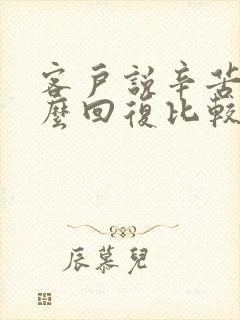 客戶說辛苦
麼回復比較
辰慕兒